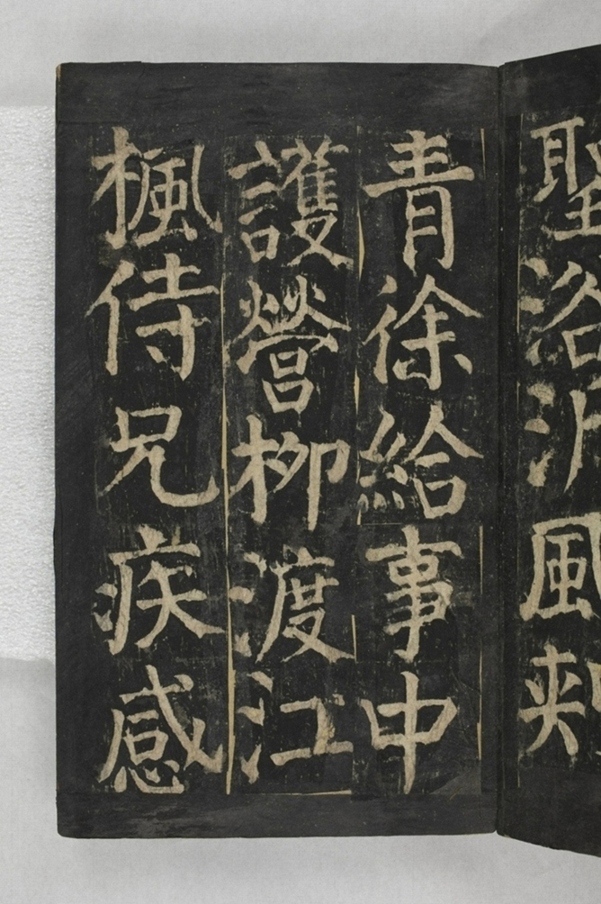 聖浴沂風
青徐給事中
護營柳渡江
楓侍兄疾感